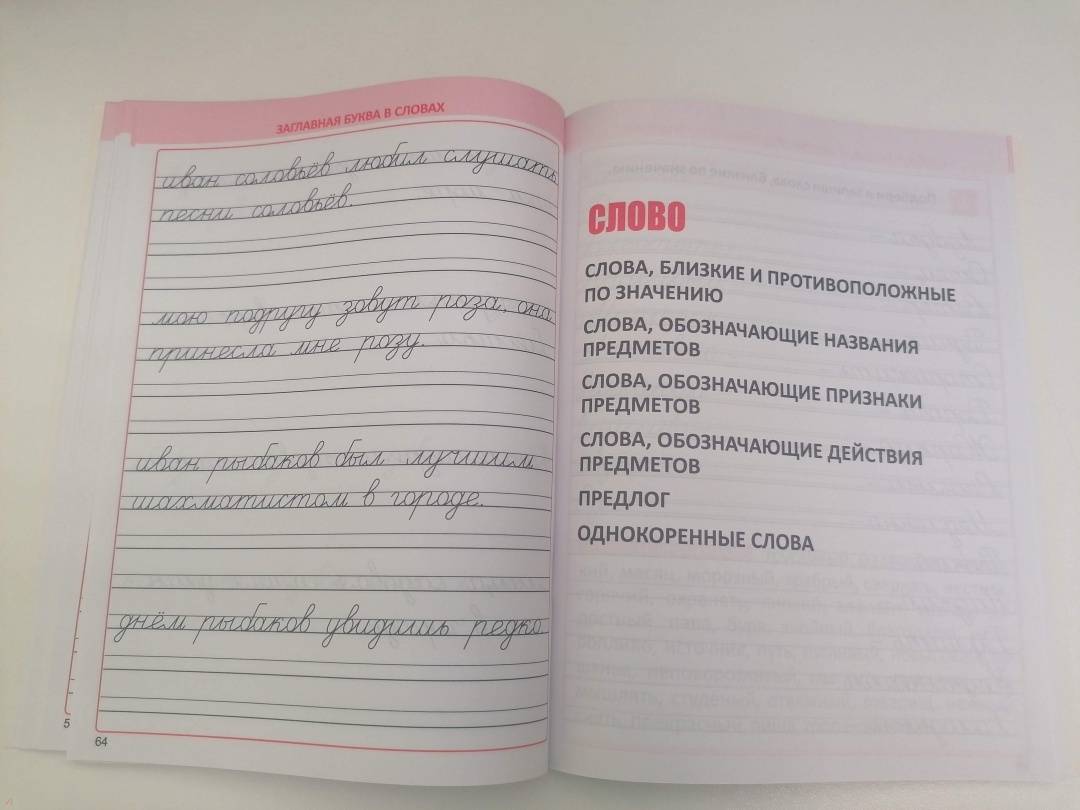 ЗАГЛАВНАЯ БУКВА В СЛОВАХ
иван соловьёв любил слушать
песни соловьёв.
мою подругу зовут роза, она
принесла мне розу.
иван рыбаков был лучшим
шахматистом в городе.
днём рыбаков увидишь редко.
64
5
СЛОВО
СЛОВА, БЛИЗКИЕ И ПРОТИВОПОЛОЖНЫЕ
ПО ЗНАЧЕНИЮ
СЛОВА, ОБОЗНАЧАЮЩИЕ НАЗВАНИЯ
ПРЕДМЕТОВ
СЛОВА, ОБОЗНАЧАЮЩИЕ ПРИЗНАКИ
ПРЕДМЕТОВ
СЛОВА, ОБОЗНАЧАЮЩИЕ ДЕЙСТВИЯ
ПРЕДМЕТОВ
ПРЕДЛОГ
ОДНОКОРЕННЫЕ СЛОВА